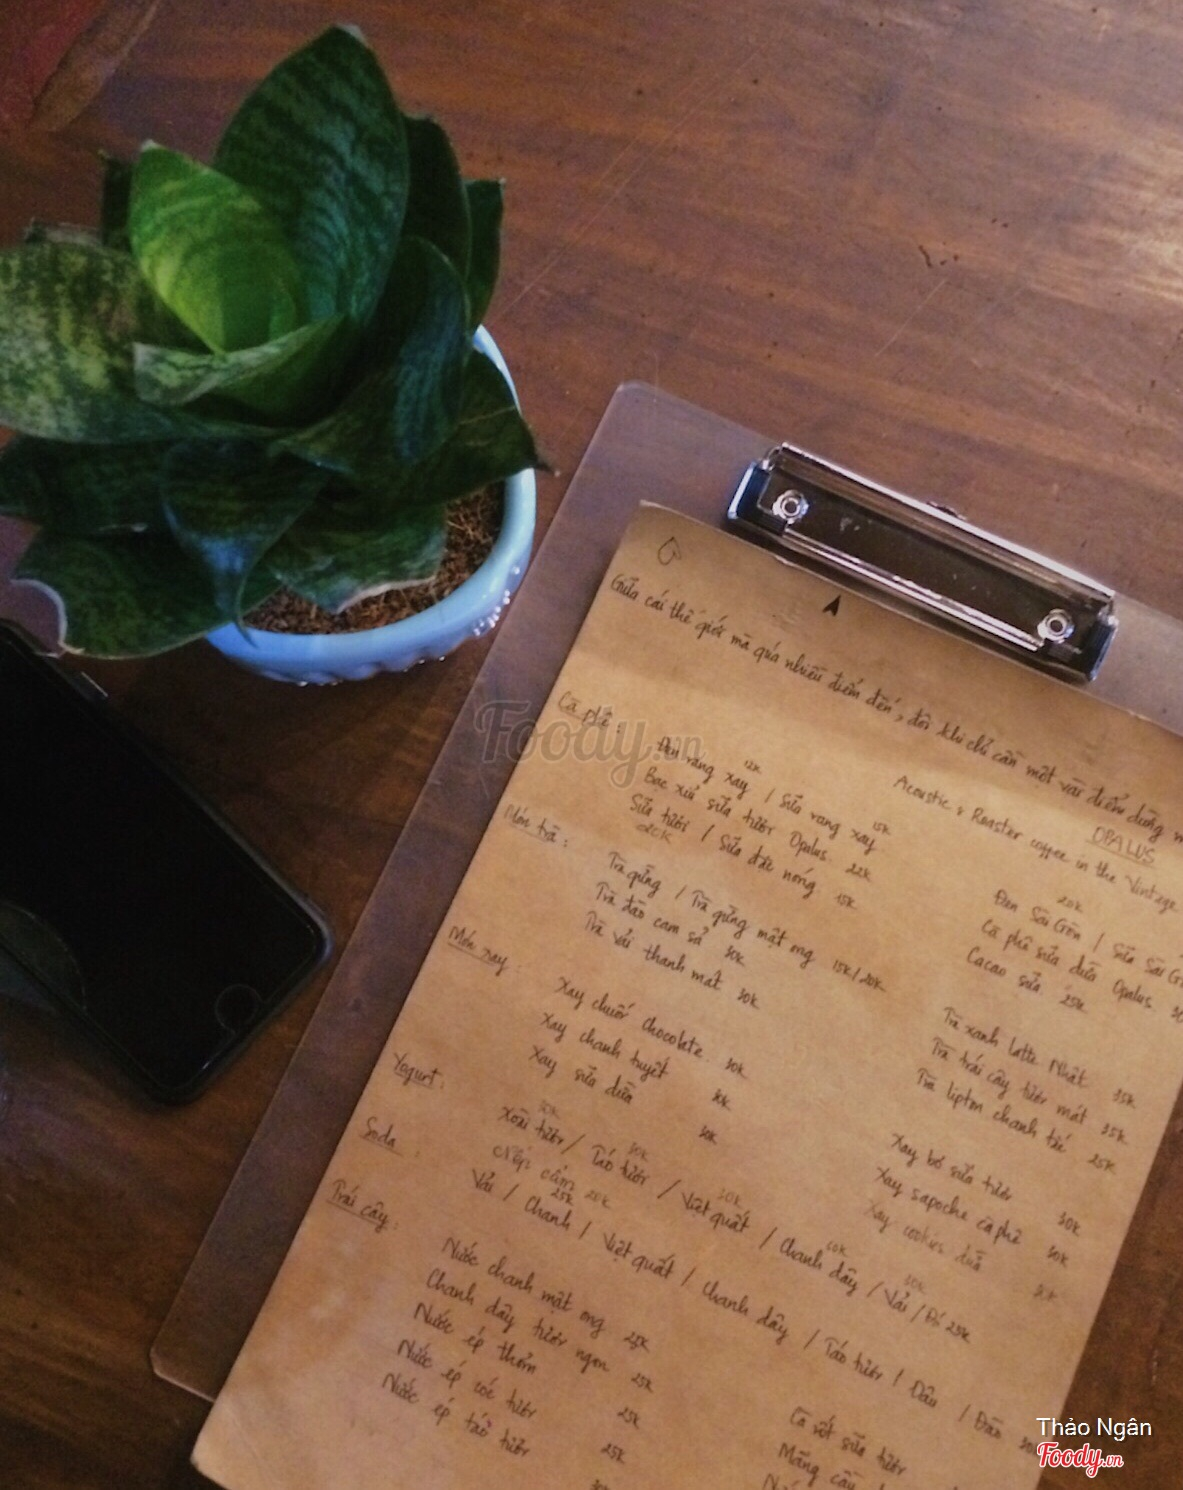 Giữa cái thế giới mà quá nhiều điểm đến, đôi khi chỉ cần một vài điểm dừng
Acoustic & Roaster coffee in the Vintage
OPALUS
Cà phê :
Đen rang xay 12k / Sữa rang xay 15k
Bạc xỉu sữa tươi Opalus 22k
Sữa tươi 20k / Sữa đặc nóng 15k
Đen Sài Gòn 20k / Sữa Sài Gòn
Cà phê sữa dừa Opalus
Cacao sữa 25k
Món trà :
Trà gừng / Trà gừng mật ong 15k / 20k
Trà đào cam sả 30k
Trà vải thanh mát 30k
Trà xanh latte Nhật 35k
Trà trái cây tươi mát 35k
Trà lipton chanh 25k
Món xay :
Xay chuối chocolate 30k
Xay chanh tuyết 30k
Xay sữa dừa 30k
Xay bơ sữa tươi 30k
Xay sapoche cà phê 30k
Xay cookies dừa 30k
Yogurt :
Xoài tươi / Táo tươi 30k / Việt quất 30k / Chanh dây / Vải / Đá 25k
Soda :
Vải / Chanh 25k / Việt quất / Chanh dây / Táo tươi / Dâu / Đào
Trái cây :
Nước chanh mật ong 25k
Chanh dây tươi ngon 25k
Nước ép thơm 25k
Nước ép cóc tươi 25k
Nước ép táo tươi
Cà rốt sữa tươi
Mãng cầu
Foody.vn
Thảo Ngân
Foody.vn